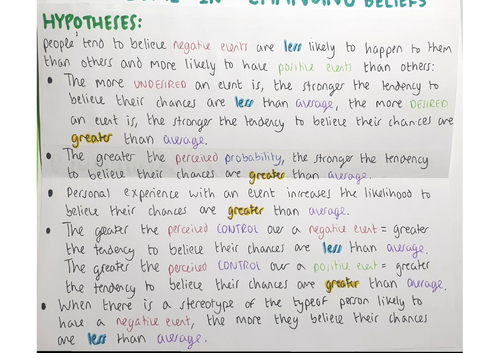 IN CHANGING BELIEFS
HYPOTHESES:
people tend to believe negative events are less likely to happen to them
than others and more likely to have positive events than others:
• The more UNDESIRED an event is, the stronger the tendency to
believe their chances are less than average, the more DESIRED
an event is, the stronger the tendency to believe their chances are
greater than average.
• The greater the perceived probability, the stronger the tendency
to believe their chances are greater than average.
• Personal experience with an event increases the likelihood to
believe their chances are greater than average.
• The greater the perceived CONTROL over a negative event = greater
the tendency to believe their chances are less than average.
The greater the perceived CONTROL over a positive event = greater
the tendency to believe their chances are greater than average.
• When there is a stereotype of the type of person likely to
have a negative event, the more they believe their chances
are less than average.